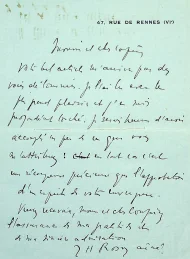 47, RUE DE RENNES (VIe)
Monsieur et cher confrère
Votre bel article m'arrive par des
voies détournées. Je l'ai lu avec le
plus grand plaisir et j'en suis
profondément touché. Je serais heureux d'avoir
accompli un peu de ce que vous
m'attribuez : en tout cas c'est
une récompense précieuse que l'approbation
d'un esprit de votre envergure.
Veuillez recevoir, mon cher confrère,
l'assurance de ma gratitude et
de ma sincère admiration
J H Rosny aîné